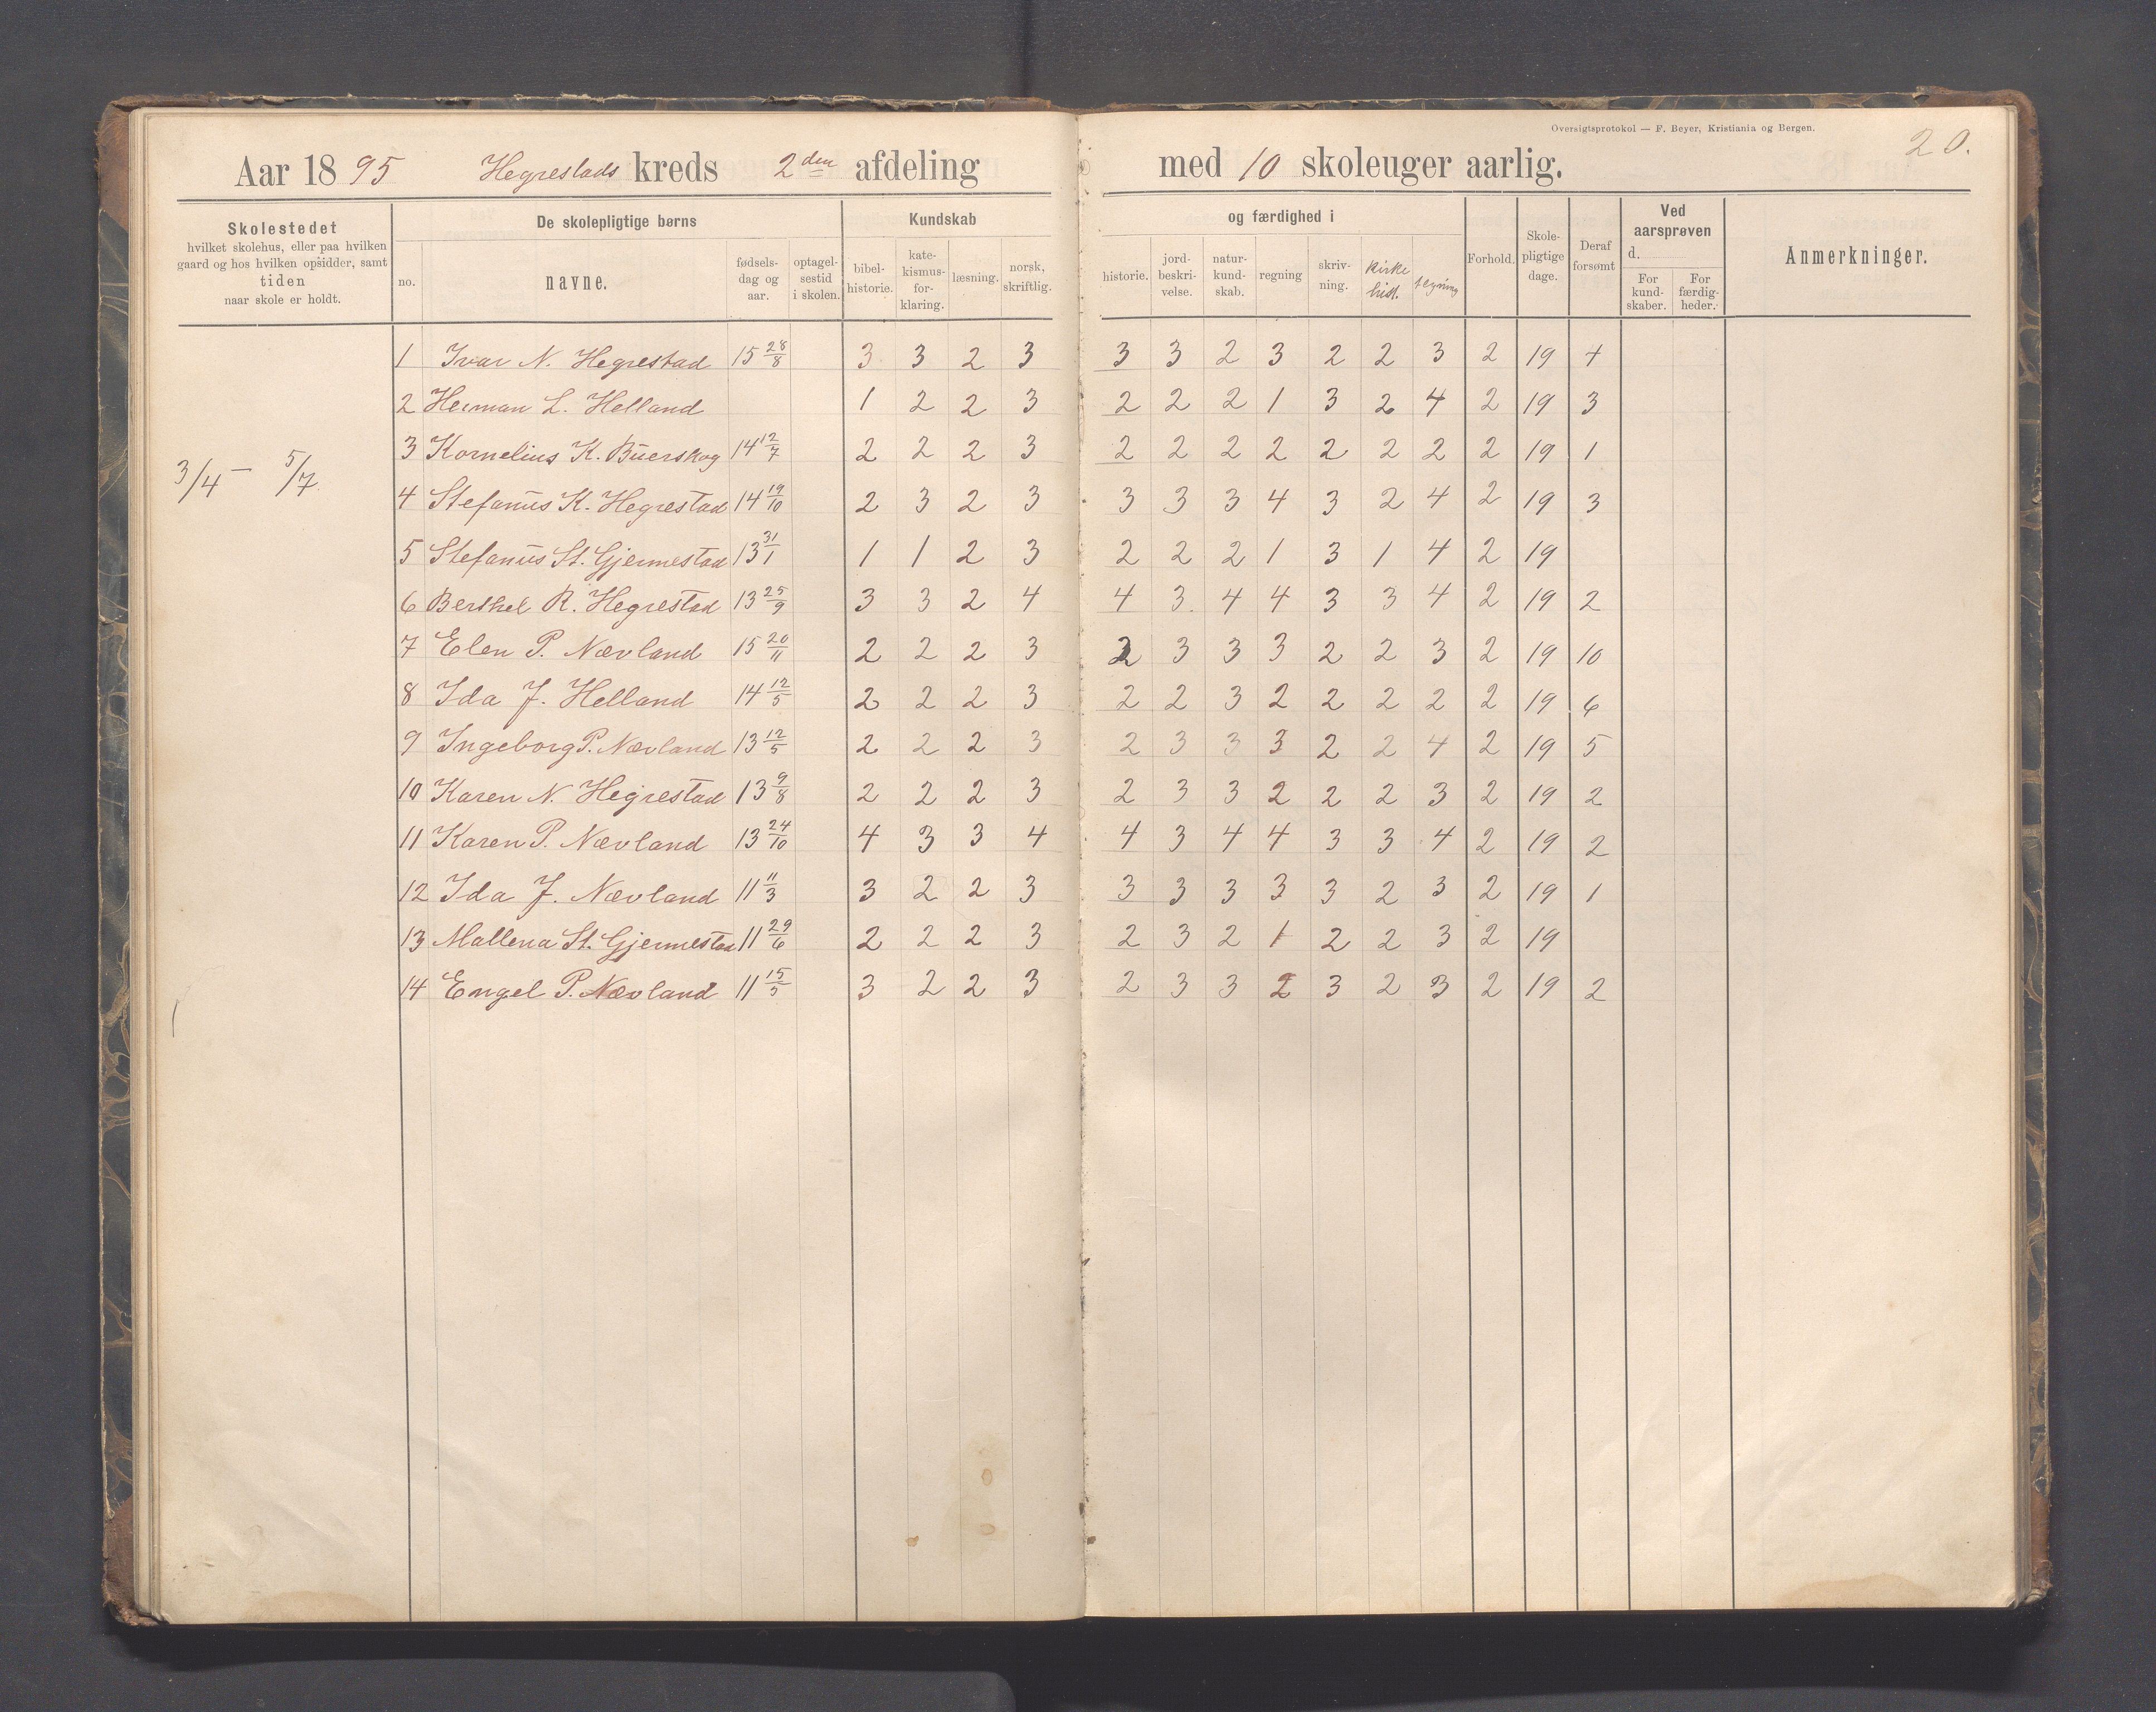 Oversigtsprotokol — F. Beyer, Kristiania og Bergen.
20.
Aar 1895 Hegrestads kreds 2den afdeling med 10 skoleuger aarlig.
Skolestedet
hvilket skolehus, eller paa hvilken
gaard og hos hvilken opsidder, samt
tiden
naar skole er holdt.
De skolepligtige børns
no.
navne.
fødsels-
dag og
aar.
optagel-
sestid
i skolen.
Kundskab
bibel-
historie.
kate-
kismus-
for-
klaring.
læsning.
norsk,
skriftlig.
og færdighed i
historie.
jord-
beskri-
velse.
natur-
kund-
skab.
regning
skriv-
ning.
Kirke
hist.
tegning
Forhold.
Skole-
pligtige
dage.
Deraf
forsømt
Ved
aarsprøven
d.
For
kund-
skaber.
For
færdig-
heder.
Anmerkninger.
3/4 – 5/7.
1 Ivar N. Hegrestad 15 28/8 3 3 2 3 3 3 2 3 2 2 3 2 19 4
2 Herman L. Helland 1 2 2 3 2 2 2 1 3 2 4 2 19 3
3 Kornelius K. Buerskog 14 12/7 2 2 2 3 2 2 2 2 2 2 2 2 19 1
4 Stefanus K. Hegrestad 14 19/10 2 3 2 3 3 3 3 4 3 2 4 2 19 3
5 Stefanus St. Gjermestad 13 31/1 1 1 2 3 2 2 2 1 3 1 4 2 19
6 Berthel R. Hegrestad 13 25/9 3 3 2 4 4 3. 4 4 3 3 4 2 19 2
7 Elen P. Nævland 15 20/11 2 2 2 3 2 3 3 3 2 2 3 2 19 10
8 Ida J. Helland 14 12/5 2 2 2 3 2 2 3 2 2 2 2 2 19 6
9 Ingeborg P. Nævland 13 12/5 2 2 2 3 2 3 3 3 2 2 4 2 19 5
10 Karen N. Hegrestad 13 9/8 2 2 2 3 2 3 3 2 2 2 3 2 19 2
11 Karen P. Nævland 13 24/10 4 3 3 4 4 3 4 4 3 3 4 2 19 2
12 Ida J. Nævland 11 11/3 3 2 2 3 3 3 3 3 3 2 3 2 19 1
13 Mallena St. Gjermestad 11 29/6 2 2 2 3 2 3 2 1 2 2 3 2 19
14 Engel P. Nævland 11 15/5 3 2 2 3 2 3 3 2 3 2 3 2 19 2